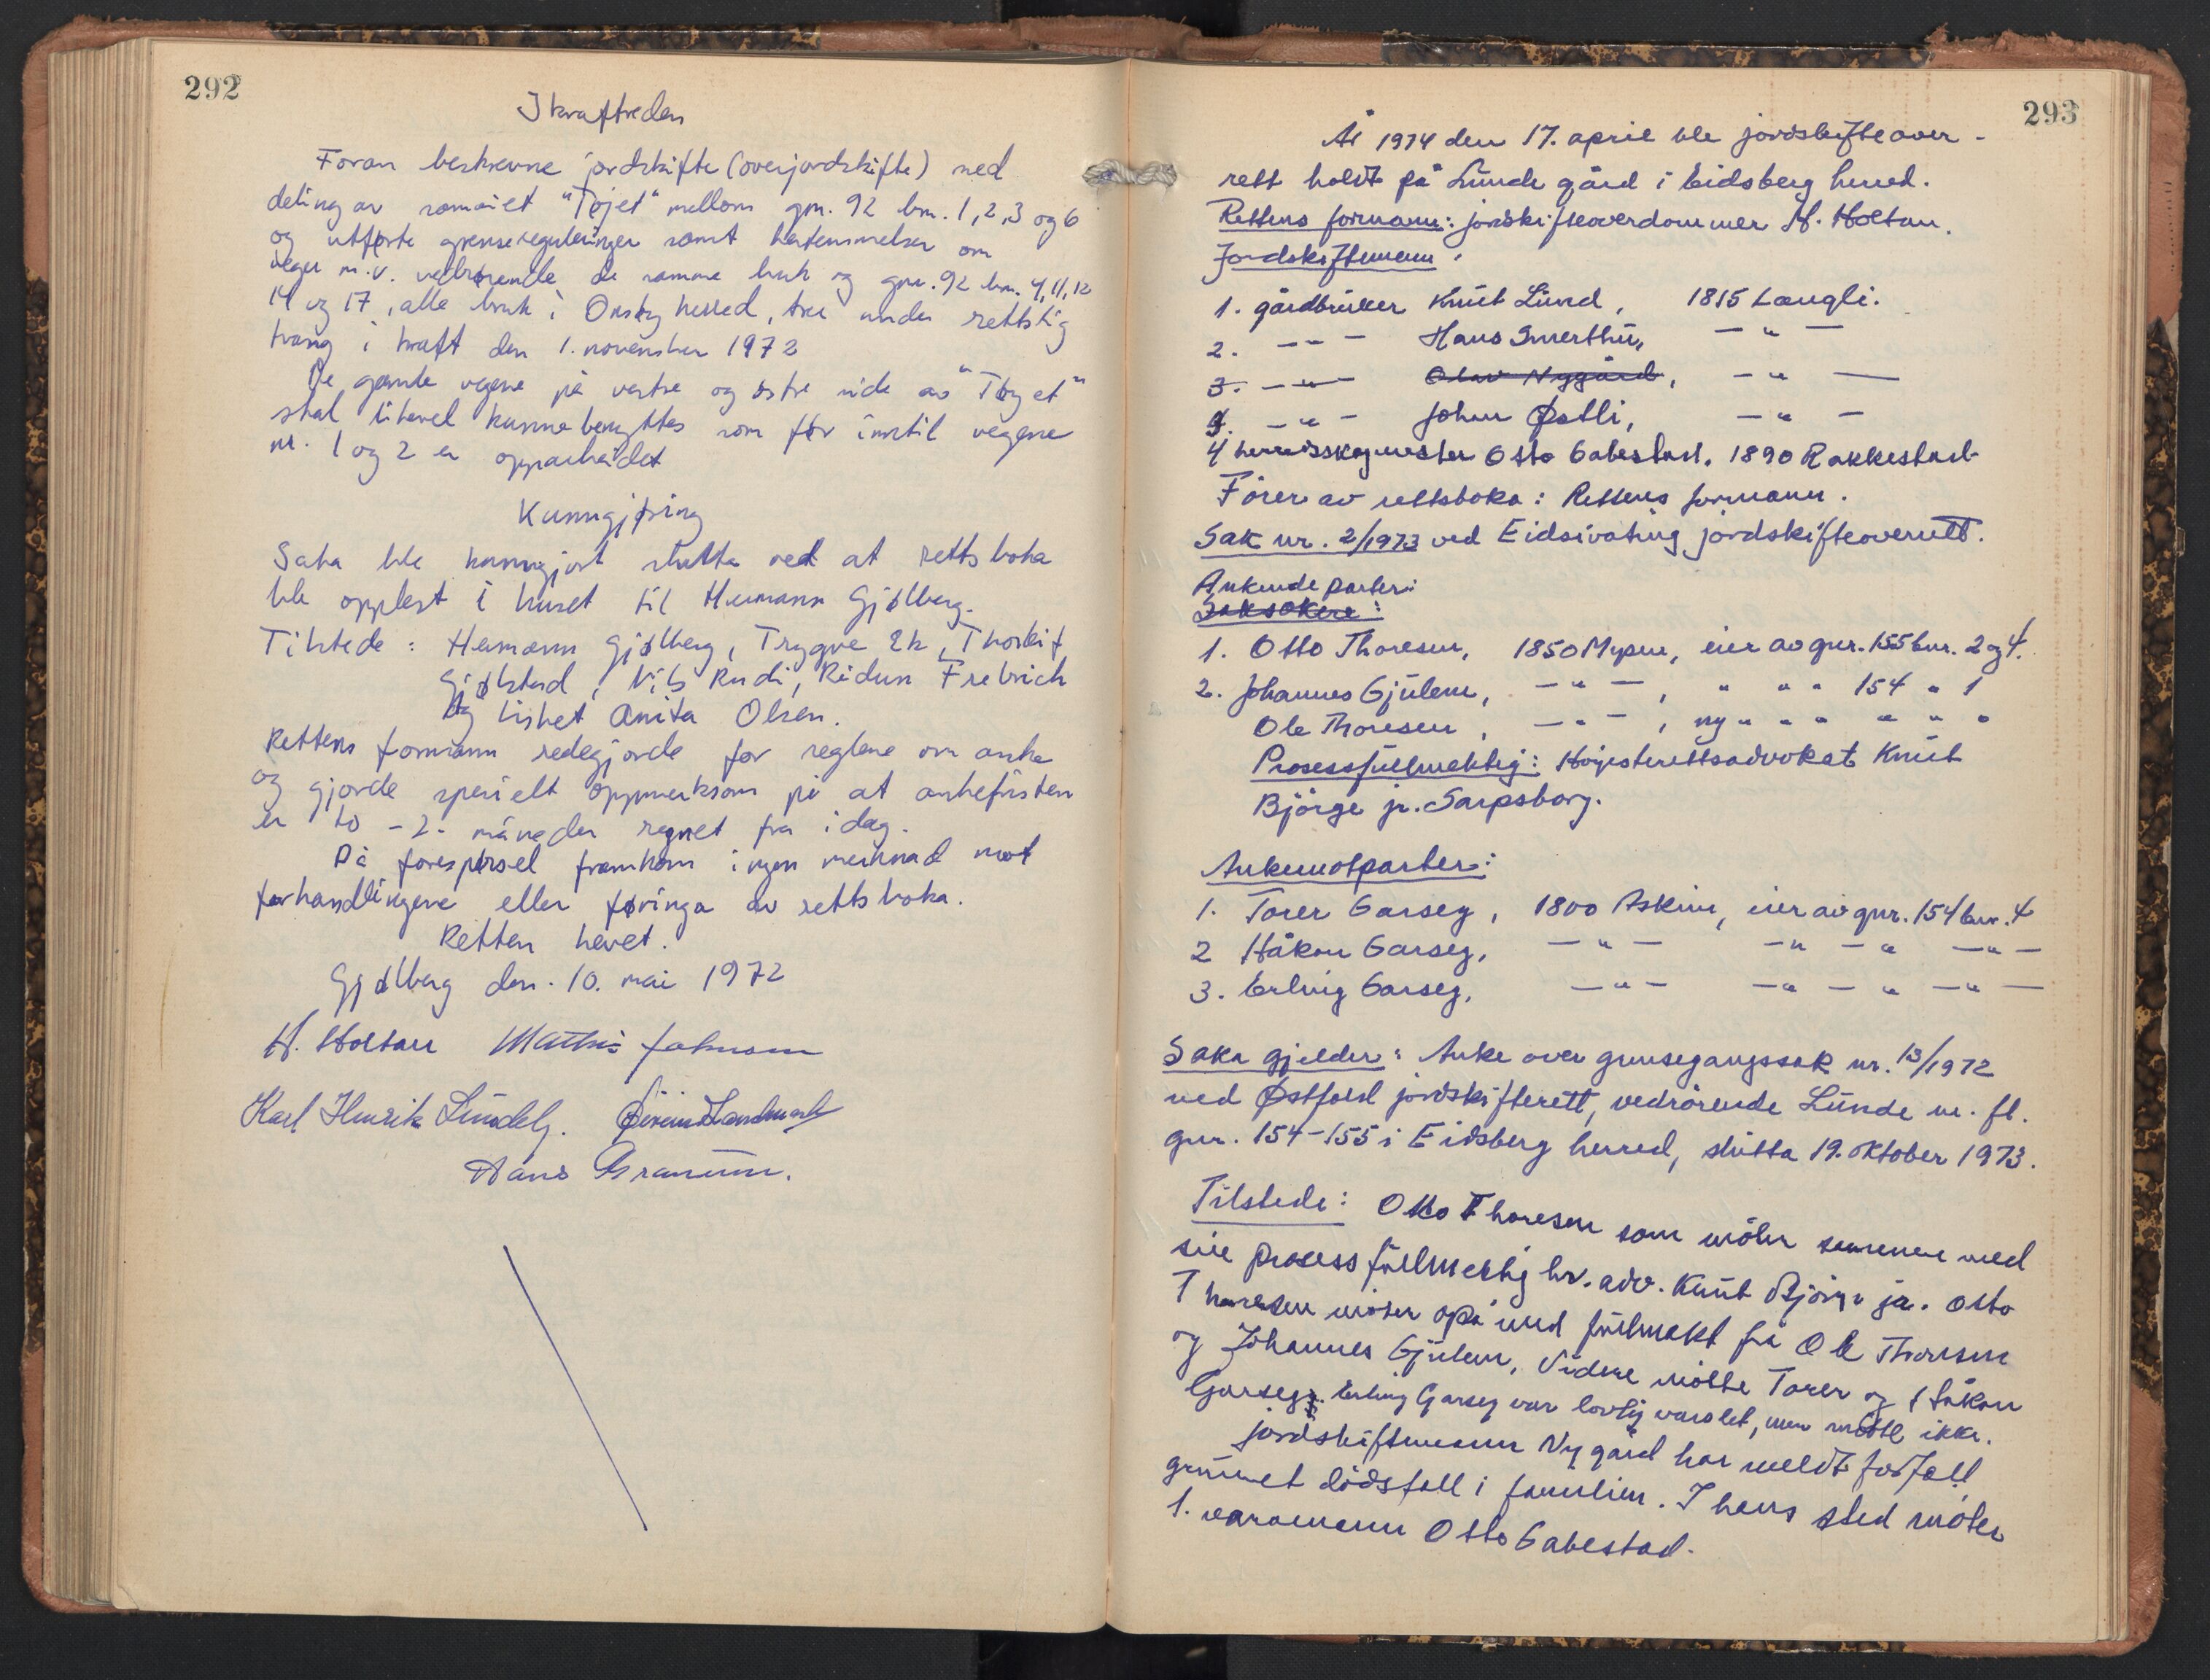 292
Ikraftreden
Foran beskrevne jordskifte (overjordskifte) med
deling av sameiet "Tøjet" mellom gnr. 92 bnr. 1, 2, 3 og 6
og utførte grensereguleringer samt bestemmelser om
veger m.v. vedrørende de samme bruk og gnr. 92 bnr. 4, 11, 12
14 og 17, alle bruk i Onsøy herred, trer under rettslig
tvang i kraft den 1. november 1972
De gamle vegene på vestre og østre side av "Tøyet"
skal likevel kunne benyttes som før inntil vegene
nr. 1 og 2 er opparbeidet
Kunngjøring
Saka ble kunngjort slutta ved at rettsboka
ble opplest i huset til Hermann Gjølberg.
Tilstede: Hermann Gjølberg, Trygve Ek, Thorleif
Gjølstad, Nils Rudi, Reidun Fredrich
og Lisbet Anita Olsen.
Rettens formann redegjorde for reglene om anke
og gjorde spesielt oppmerksom på at ankefristen
er to -2- måneder regnet fra i dag.
På forespørsel framkom ingen merknad mot
forhandlingene eller føringa av rettsboka.
Retten hevet.
Gjølberg den. 10. mai 1972
H. Holtan Mathis Johnsen
Karl Henrik Lundeby. Øivind Landmark
Hans Granum.
293
År 1974 den 17. april ble jordskifteover-
rett holdt på Lunde gård i Eidsberg herred.
Rettens formann: jordskifteoverdommer H. Holtan.
Jordskiftemenn:
1. gårdbruker Knut Lund, 1815 Langli.
2. - " - Hans Smerthu, - " -
3. - " - Olav Nygård, - " -
3. - " - Johan Østli, - " -
4 herredsskogmester Otto Gabestad, 1890 Rakkestad
Fører av rettsboka: Rettens formann.
Sak nr. 2/1973 ved Eidsivating jordskifteoverrett.
Ankende parter:
Saksøkere:
1. Otto Thoresen, 1850 Mysen, eier av gnr. 155 bnr. 2 og 4.
2. Johannes Gjulem, - " -, " " " 154 " 1
Ole Thoresen, - " -, ny " " " " " "
Prosessfullmektig: Høyesterettsadvokat Knut
Bjørge jr. Sarpsborg.
Ankemotparter:
1. Torer Garseg, 1800 Askim, eier av gnr. 154 bnr. 4
2 Håkon Garseg, - " - - " - " - " -
3. Erling Garseg, - " - - " - " - " -
Saka gjelder: Anke over grensegangssak nr. 13/1972
ved Østfold jordskifterett, vedrørende Lunde m. fl.
gnr. 154-155 i Eidsberg herred, slutta 19. oktober 1973.
Tilstede: Otto Thoresen som møter sammen med
sin prosessfullmektig hr. adv. Knut Bjørge jr. Otto
Thoresen møter også med fullmakt frå Ole Thoresen
og Johannes Gjulem, Videre møtte Torer og Håkon
Garseg. Erling Garseg var lovlig varslet, men møtte ikke.
jordskiftemann Nygård har meldt forfall
grunnet dødsfall i familien. I hans sted møter
1. varamann Otto Gabestad.